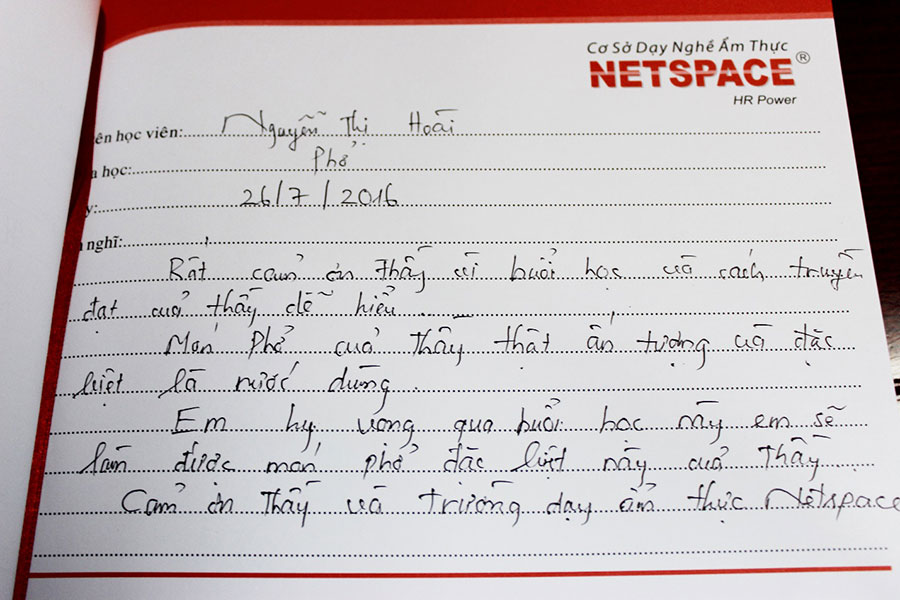 Cơ Sở Dạy Nghề Ẩm Thực
NETSPACE®
HR Power
ên học viên: Nguyễn Thị Hoài
a học: Phở
y: 26/7/2016
nghĩ:
Rất cảm ơn thầy vì buổi học và cách truyền
đạt của thầy dễ hiểu.
Món Phở của Thầy thật ấn tượng và đặc
biệt là nước dùng.
Em hy vọng qua buổi học này em sẽ
làm được món phở đặc biệt này của Thầy.
Cảm ơn Thầy và trường dạy ẩm thực Netspace